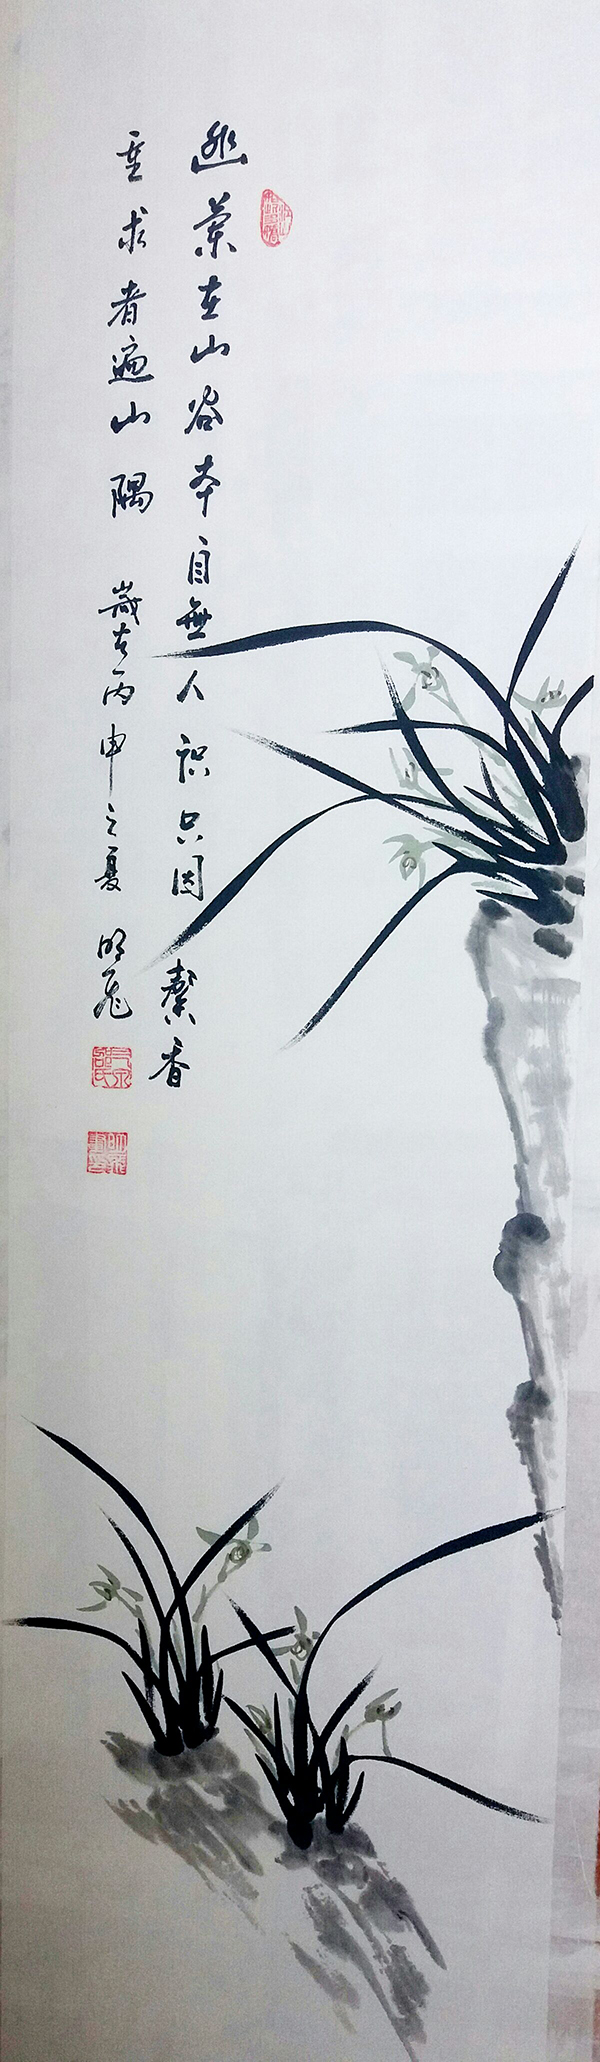 幽蘭在山谷本自無人識只因馨香
重求者遍山隅 歲在丙申之夏 明飛